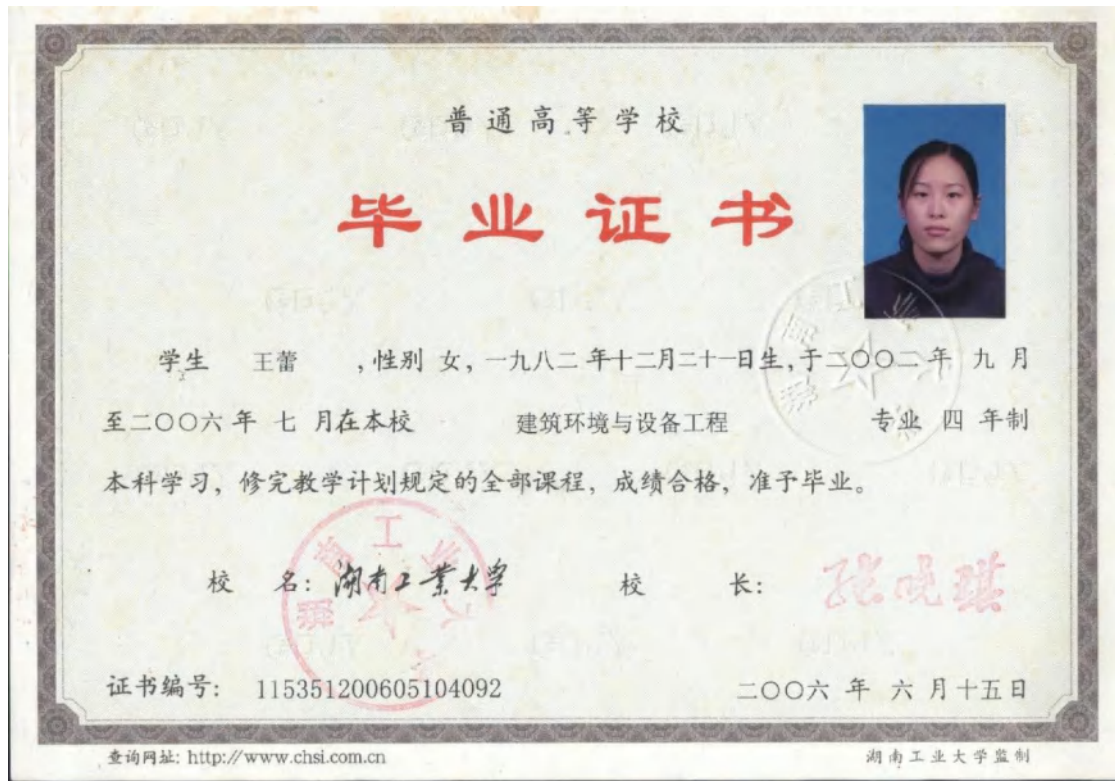 普通高等学校
毕业证书
学生 王蕾 ,性别 女，一九八二年十二月二十一日生,于二〇〇二年 九 月
至二〇〇六年 七 月在本校 建筑环境与设备工程 专业 四 年制
本科学习，修完教学计划规定的全部课程，成绩合格，准予毕业。
校 名：湖南工業大学 校 长： 张晓琪
湖南工业大学
证书编号： 115351200605104092 二〇〇六 年 六 月十五日
查询网址: http://www.chsi.com.cn 湖南工业大学监制